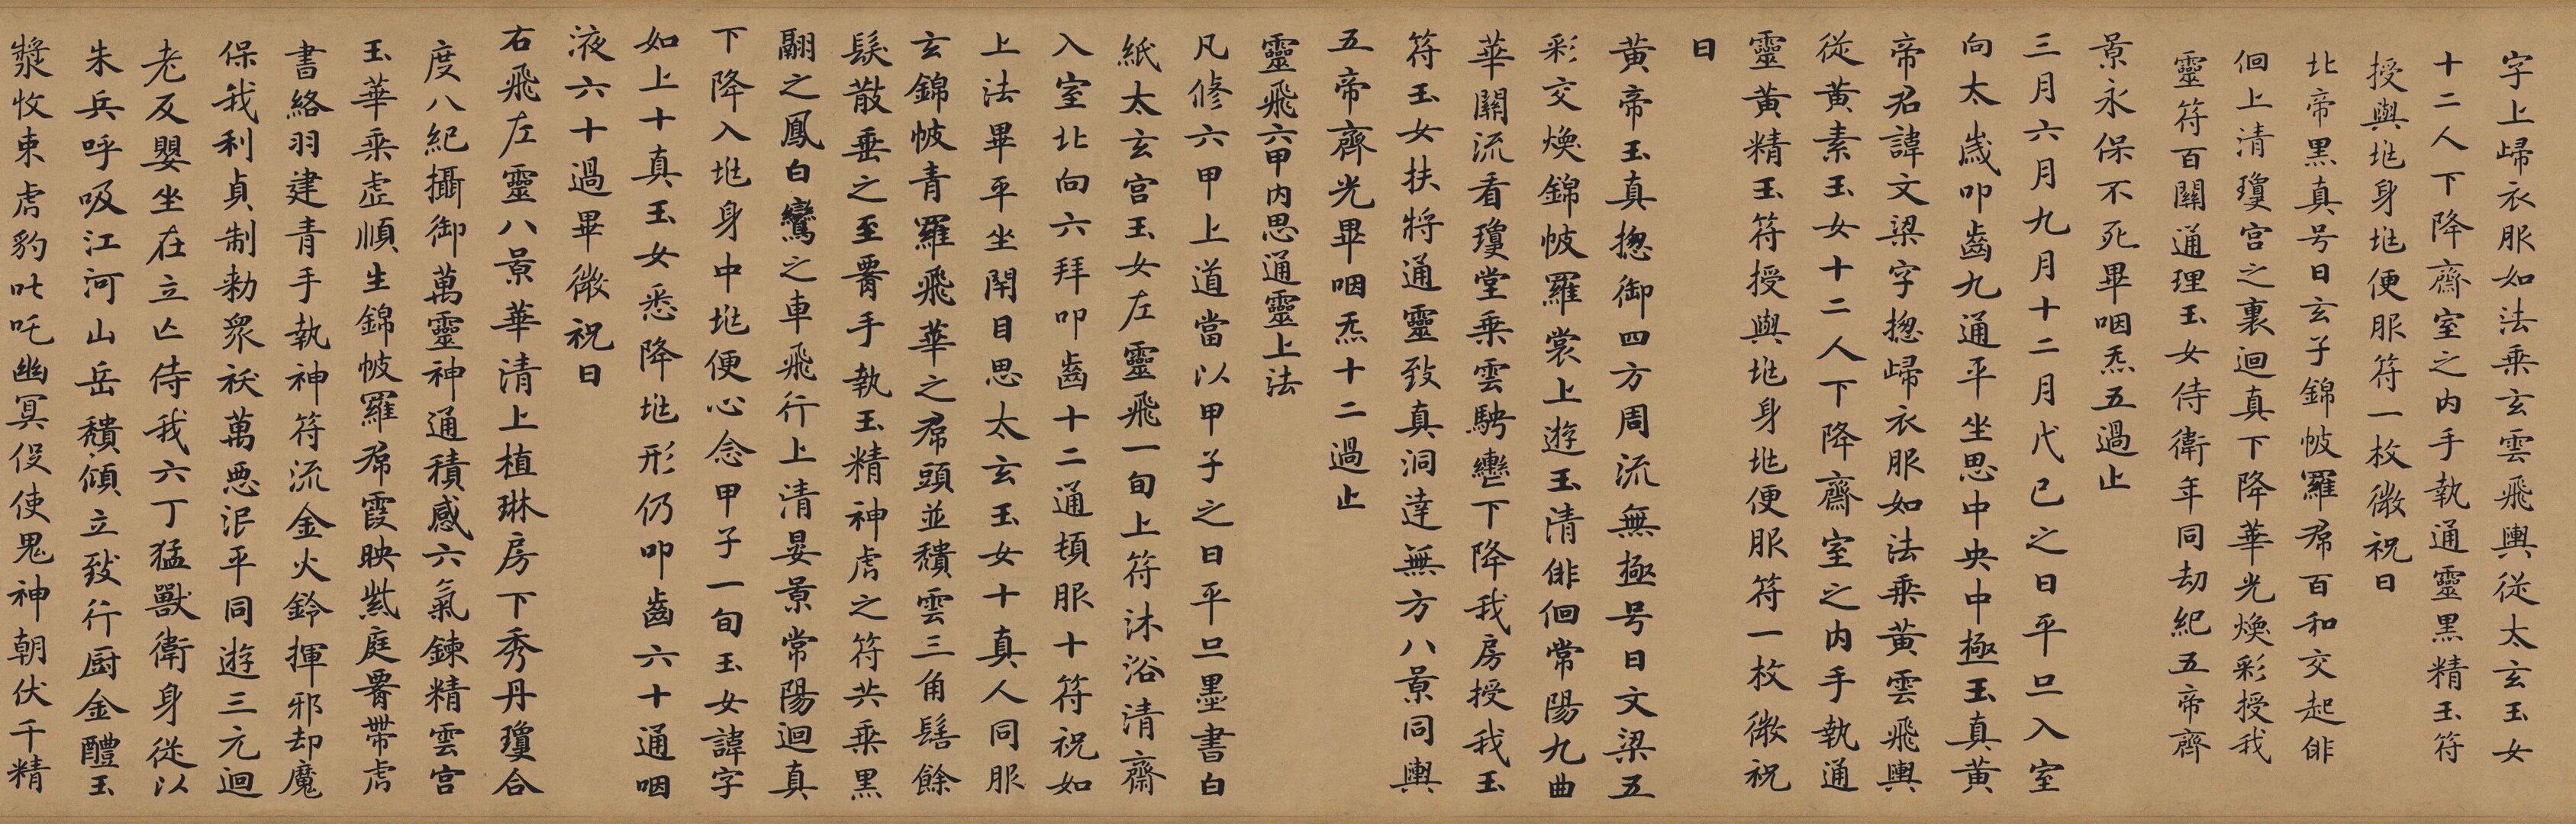 字上歸衣服如法乘玄雲飛輿從太玄玉女
十二人下降齋室之内手執通靈黑精玉符
授與兆身兆便服符一枚微祝曰
北帝黑真号曰玄子錦帔羅帬百和交起俳
佪上清瓊宫之裏迴真下降華光煥彩授我
靈符百關通理玉女侍衛年同劫紀五帝齊
景永保不死畢咽炁五過止
三月六月九月十二月戊己之日平旦入室
向太歲叩齒九通平坐思中央中極玉真黄
帝君諱文梁字揔歸衣服如法乘黄雲飛輿
從黄素玉女十二人下降齋室之内手執通
靈黄精玉符授與兆身兆便服符一枚微祝
曰
黄帝玉真揔御四方周流無極号曰文梁五
彩交煥錦帔羅裳上遊玉清俳佪常陽九曲
華關流看瓊堂乘雲騁轡下降我房授我玉
符玉女扶將通靈致真洞達無方八景同輿
五帝齊光畢咽炁十二過止
靈飛六甲内思通靈上法
凡修六甲上道當以甲子之日平旦墨書白
紙太玄宫玉女左靈飛一旬上符沐浴清齋
入室北向六拜叩齒十二通頓服十符祝如
上法畢平坐閇目思太玄玉女十真人同服
玄錦帔青羅飛華之帬頭並穨雲三角髻餘
髮散垂之至𦝫手執玉精神虎之符共乘黑
翮之鳳白鸞之車飛行上清晏景常陽迴真
下降入兆身中兆便心念甲子一旬玉女諱字
如上十真玉女悉降兆形仍叩齒六十通咽
液六十過畢微祝曰
右飛左靈八景華清上植琳房下秀丹瓊合
度八紀攝御萬靈神通積感六氣鍊精雲宫
玉華乘虚順生錦帔羅帬霞映紫庭𦝫帶虎
書絡羽建青手執神符流金火鈴揮邪却魔
保我利貞制勑衆祅萬惡泯平同遊三元迴
老反嬰坐在立亡侍我六丁猛獸衛身從以
朱兵呼吸江河山岳穨傾立致行厨金醴玉
漿收束虎豹叱吒幽冥役使鬼神朝伏千精